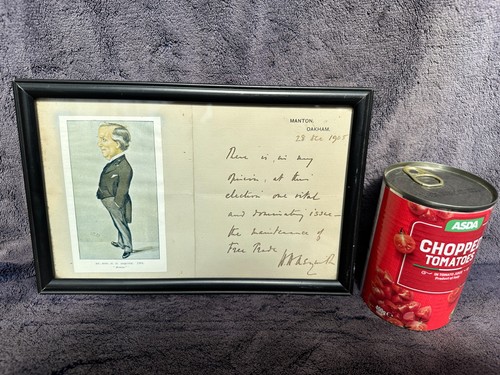 MANTON,
OAKHAM.
28 Dec 1905
There is, in my
opinion, at this
election one vital
and dominating issue—
the maintenance of
Free Trade
H H Asquith
ASDA
CHOPPED
TOMATOES
IN TOMATO JUICE
Product of Italy